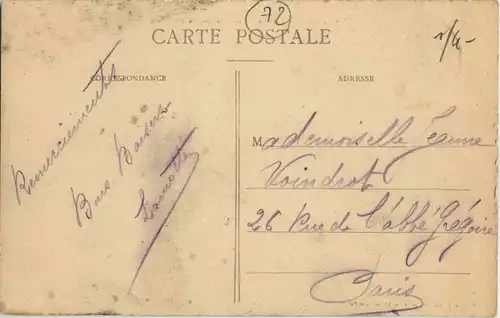 72
CARTE POSTALE
CORRESPONDANCE
ADRESSE
Remerciements
Bons Baisers
Mademoiselle Jeanne
Voindrot
26 Rue de l'abbé Grégoire
Paris